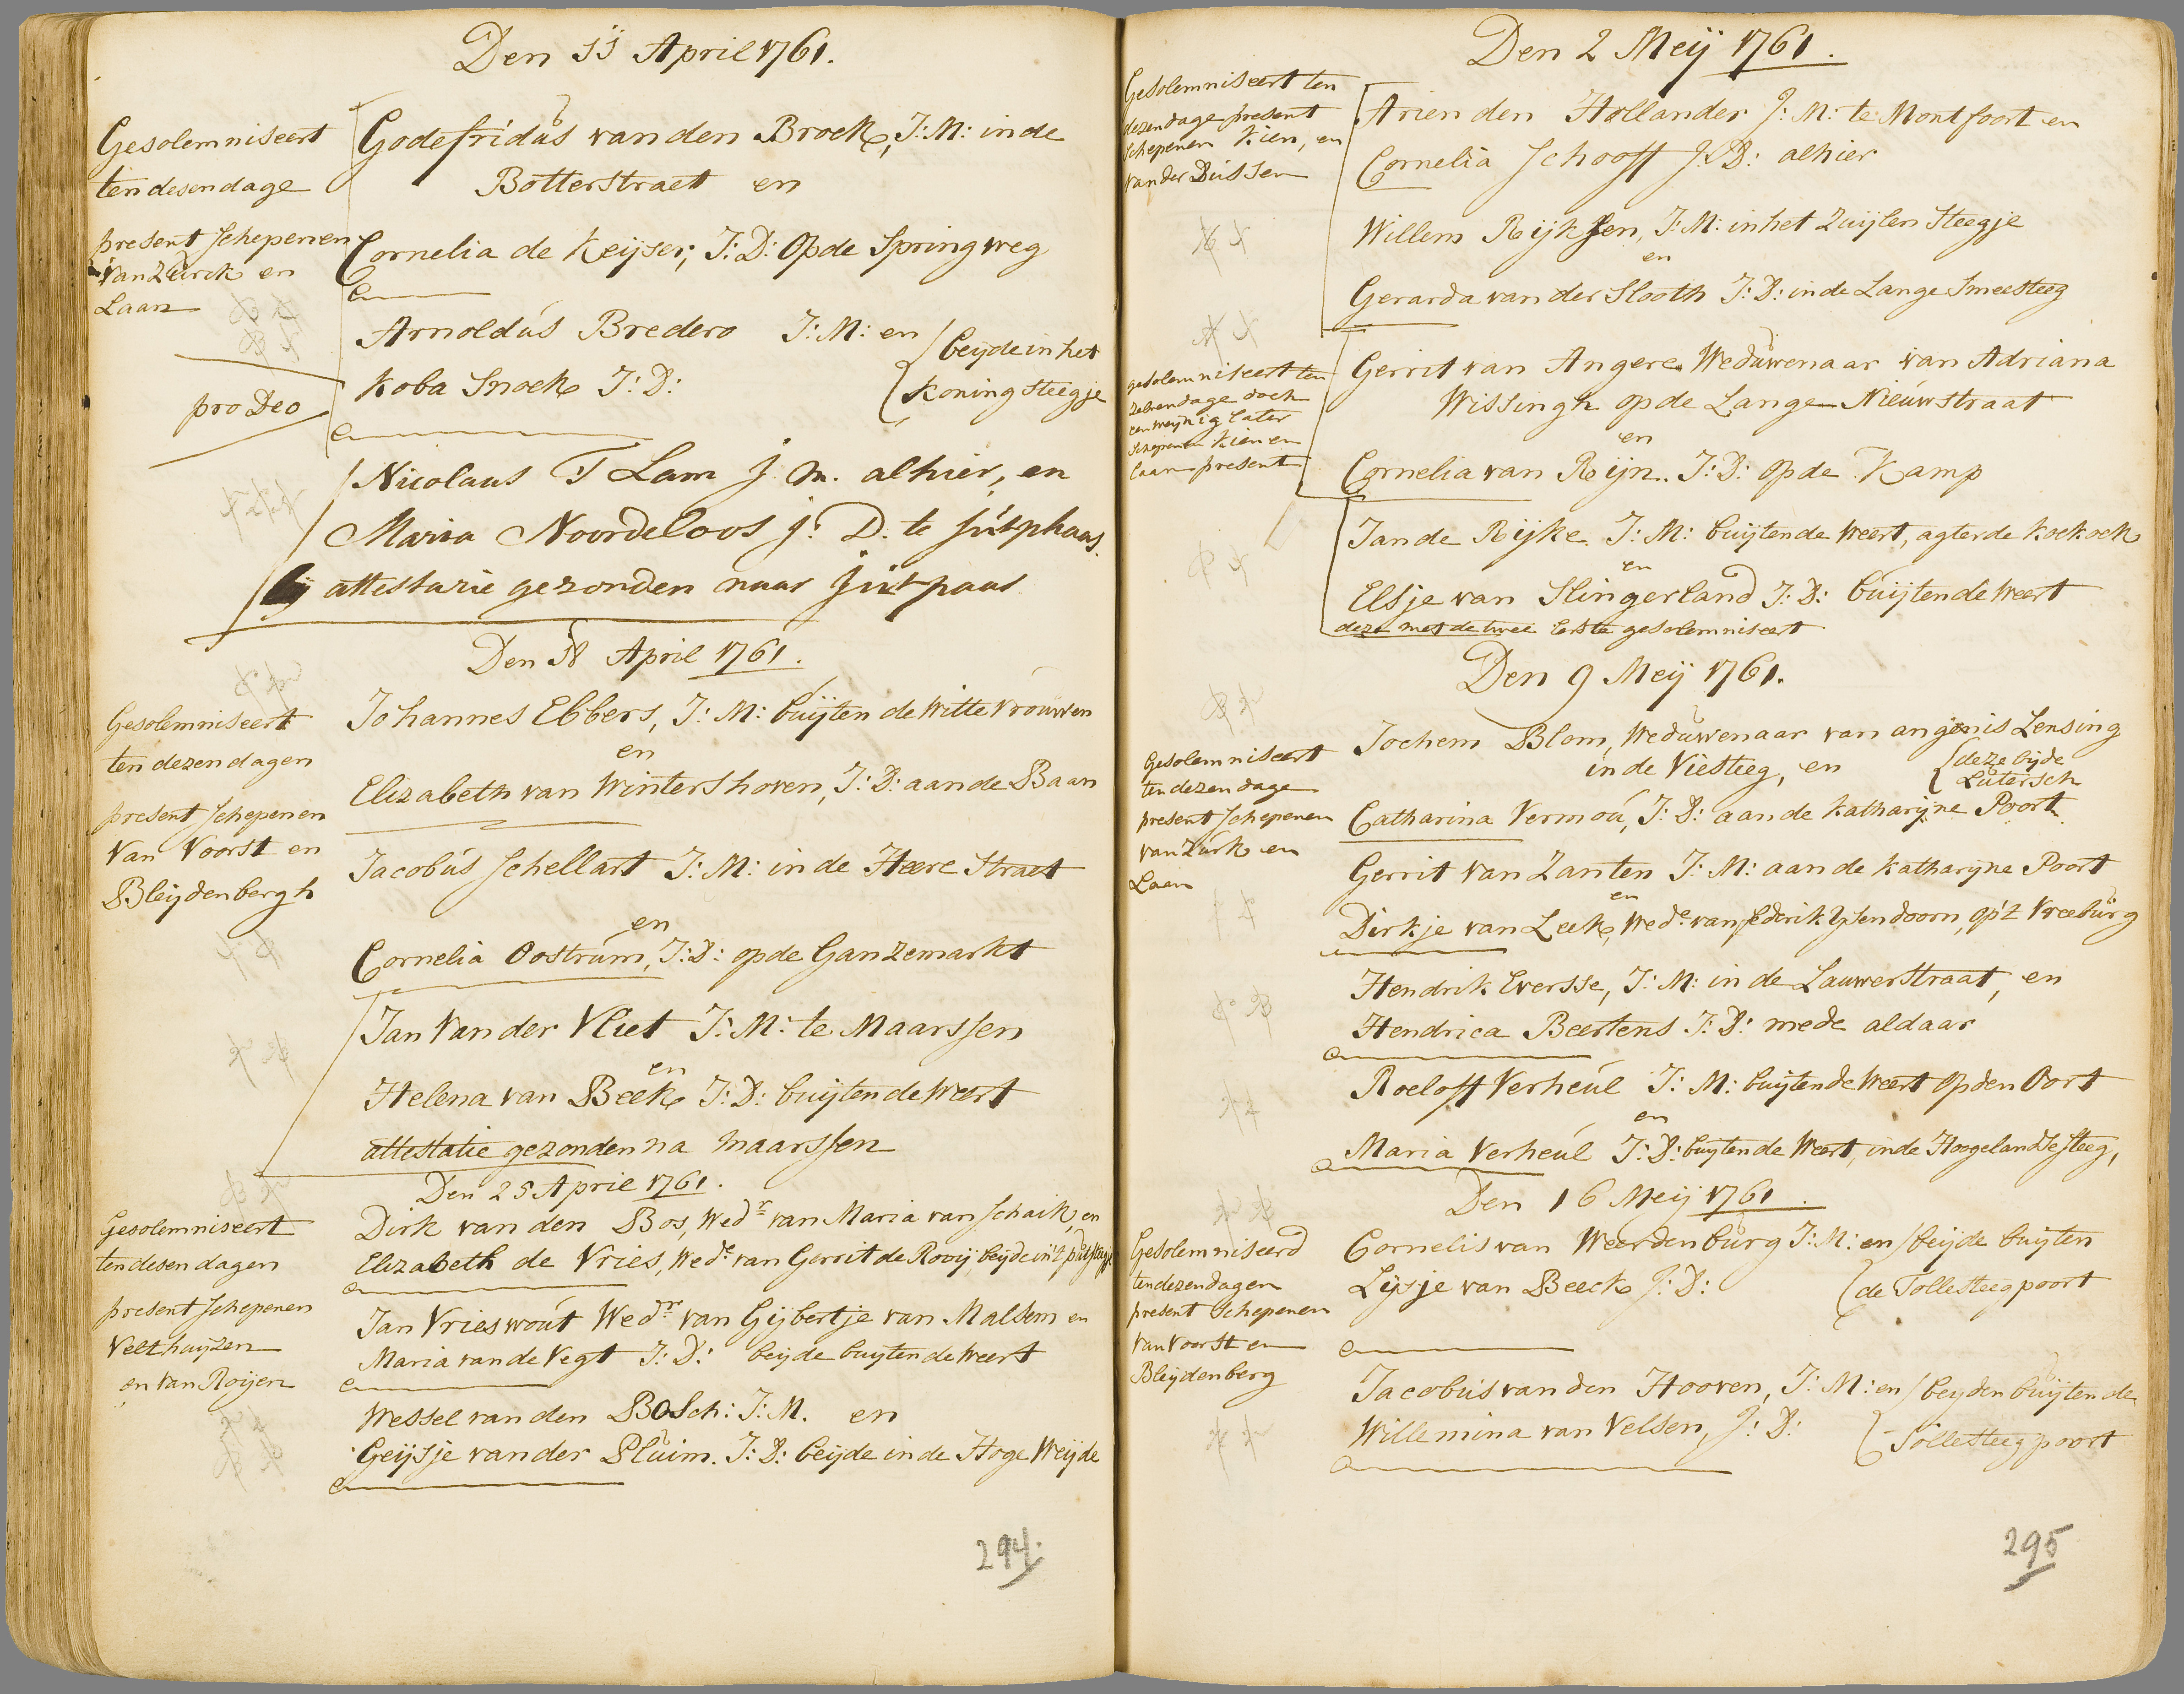 Den 11 April 1761.
Gesolemniseert
ten desen dage
present Schepenen
van Zurck en
Laan
Godefridus van den Broek, J: M: in de
Botterstraet en
Cornelia de Keijser, J: D: op de Springweg
Arnoldus Bredero J: M: en
beijde in het
Koba Snoek J: D:
Koning steegje
pro Deo
Nicolaus T Lam j. m. alhier, en
Maria Noordeloos j: D. te Jutphaas
bij attestasie gezonden naar Jutpaas
Den 18 April 1761.
Gesolemniseert
ten dezen dagen
present Schepenen
van Voorst en
Bleijdenbergh
Johannes Ebbers, J: M: buijten de Witte Vrouwen
en
Elizabeth van Wintershoven, J: D: aan de Baan
Jacobus Schellart J: M: in de Heere Straet
en
Cornelia Oostrum, J: D: op de Ganzemarkt
Jan van der Vliet J: M: te Maarssen
en
Helena van Beek J: D: buijten de Weert
attestatie gezonden na Maarssen
Den 25 April 1761.
Gesolemniseert
ten desen dagen
present Schepenen
Velthuijzen
en van Roijen
Dirk van den Bos, Wedr van Maria van Schaik, en
Elizabeth de Vries, Wede van Gerrit de Rooij, beijde in't
Jan Vrieswout Wedr van Gijbertje van Malsem en
Maria van de Vegt J: D: beijde buijten de Weert
Wessel van den Bosch: J: M. en
Geijsje van der Pluim. J: D: beijde in de Hoge Weijde
294.
Den 2 Meij 1761.
Gesolemniseert ten
dezen dage present
schepenen Kien, en
van der Dussen
Arien den Hollander J: M: te Montfoort en
Cornelia Schooff J: D: alhier
Willem Rijksen, J: M: in het Zuijlen Steegje
en
Gerarda van der Slooth J: D: in de Lange Smeesteeg
gesolemniseert ten
zelven dage doch
een weijnig later
schepenen Kien en
Laan present
Gerrit van Angere Weduwenaar van Adriana
Wissingh op de Lange Nieuwstraat
en
Cornelia van Rijn. J: D: op de Kamp
Jan de Rijke J: M: buijten de Weert, agter de Koekoek
en
Elsje van Slingerland J: D: buijten de Weert
deze met de twee Eerste gesolemniseert
Den 9 Meij 1761.
Gesolemniseert
ten dezen dage
present Schepenen
van Zurk en
Laan
Jochem Blom, Weduwenaar van angenis Lensing
in de Viesteeg, en
deze bijde
Lutersch
Catharina Vermou, J: D: aan de Katharijne Poort
Gerrit van Zanten J: M: aan de Katharijne Poort
en
Dirkje van Leek, Wede van fredrik Ysendoorn, op't Vreeburg
Hendrik Eversse, J: M: in de Lauwerstraat, en
Hendrica Beertens J: D: mede aldaar
Roeloff Verheul J: M: buijten de Weert op den Oort
en
Maria Verheul J: D: buijten de Weert, in de Hoogelandse steeg,
Den 16 Meij 1761.
Gesolemniseerd
ten dezen dagen
present Schepenen
van Voorst en
Bleijdenberg
Cornelis van Weerdenburg J: M: en
beijde buijten
Lijsje van Beeck J: D:
de Tollesteegpoort
Jacobus van den Hooven, J: M: en
beijden buijten de
Willemina van Velsen, J: D:
Tollesteegpoort
295